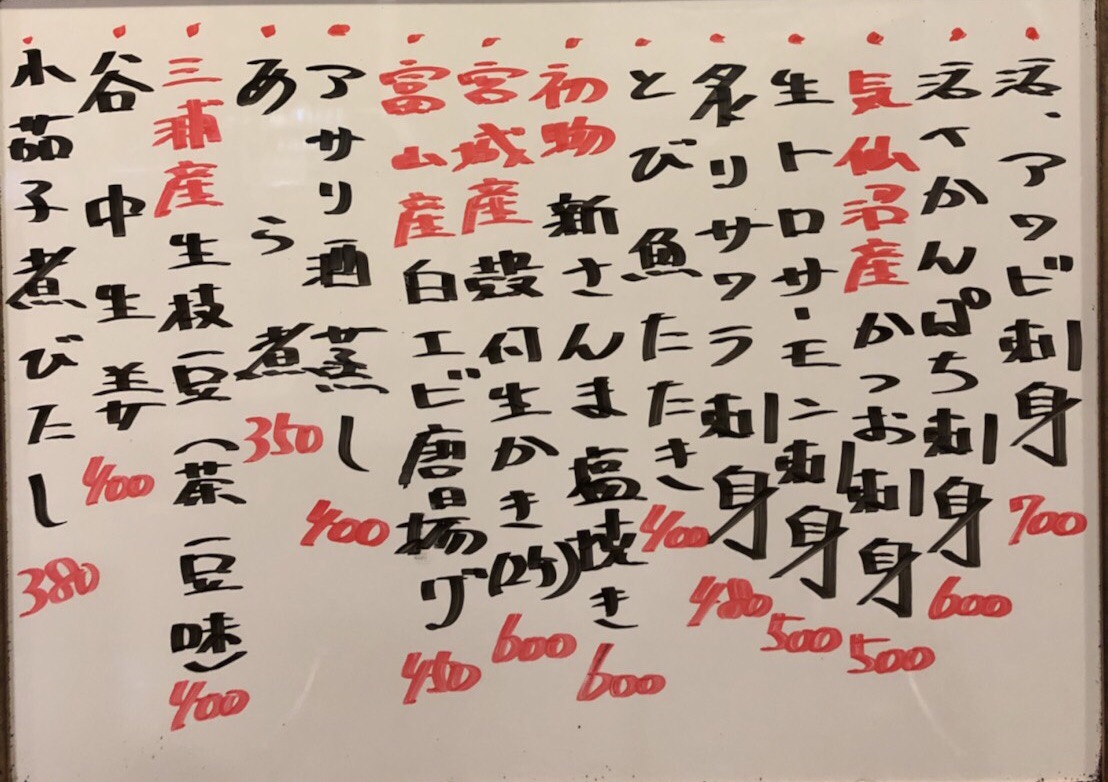 活、アワビ刺身 700
活イかんぱち刺身 600
気仙沼産かつお刺身 500
生トロサーモン刺身 500
炙りサワラ刺身 480
とび魚たたき 400
初物新さんま塩焼き 600
宮城産殻付生かき(2ケ) 600
富山産白エビ唐揚げ 450
アサリ酒蒸し 400
あら煮 350
三浦産生枝豆(茶豆味) 400
谷中生姜 400
水茄子煮びたし 380